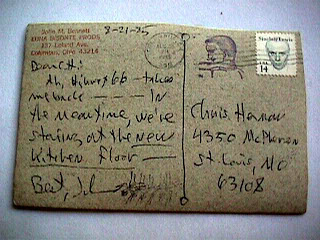 John M. Bennett
LUNA BISONTE PRODS
137 Leland Ave.
Columbus, Ohio 43214
8-21-85
Sinclair Lewis
USA
14
Ah, Hiway 66 — takes
me back — In
the meantime, we're
staring at the new
kitchen floor —
Best, John
Chris Herman
4350 McPherson
St Louis, MO
63108